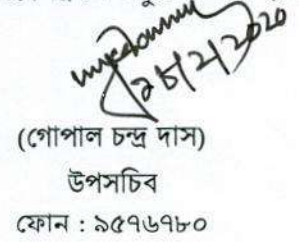 ২৫/২/২০২০
(গোপাল চন্দ্র দাস)
উপসচিব
ফোন : ৯৫৭৬৭৮০